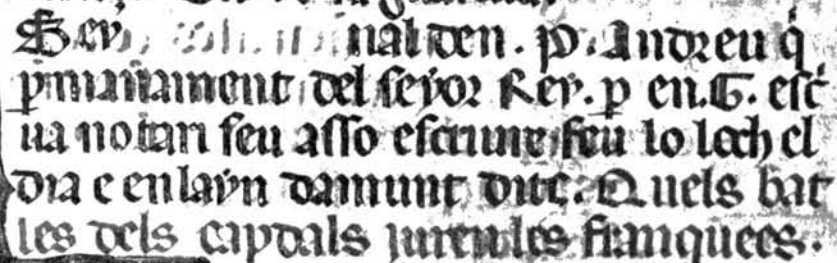 Sey nal den . P . Andreu q̇
ꝑ manament del seyor Rey . ꝑ en . G . esc̃
ua notari feu asso escriure feu lo loch el
dia e en layn damunt ditz . Quels bat
les dels capdals juren les franquees .